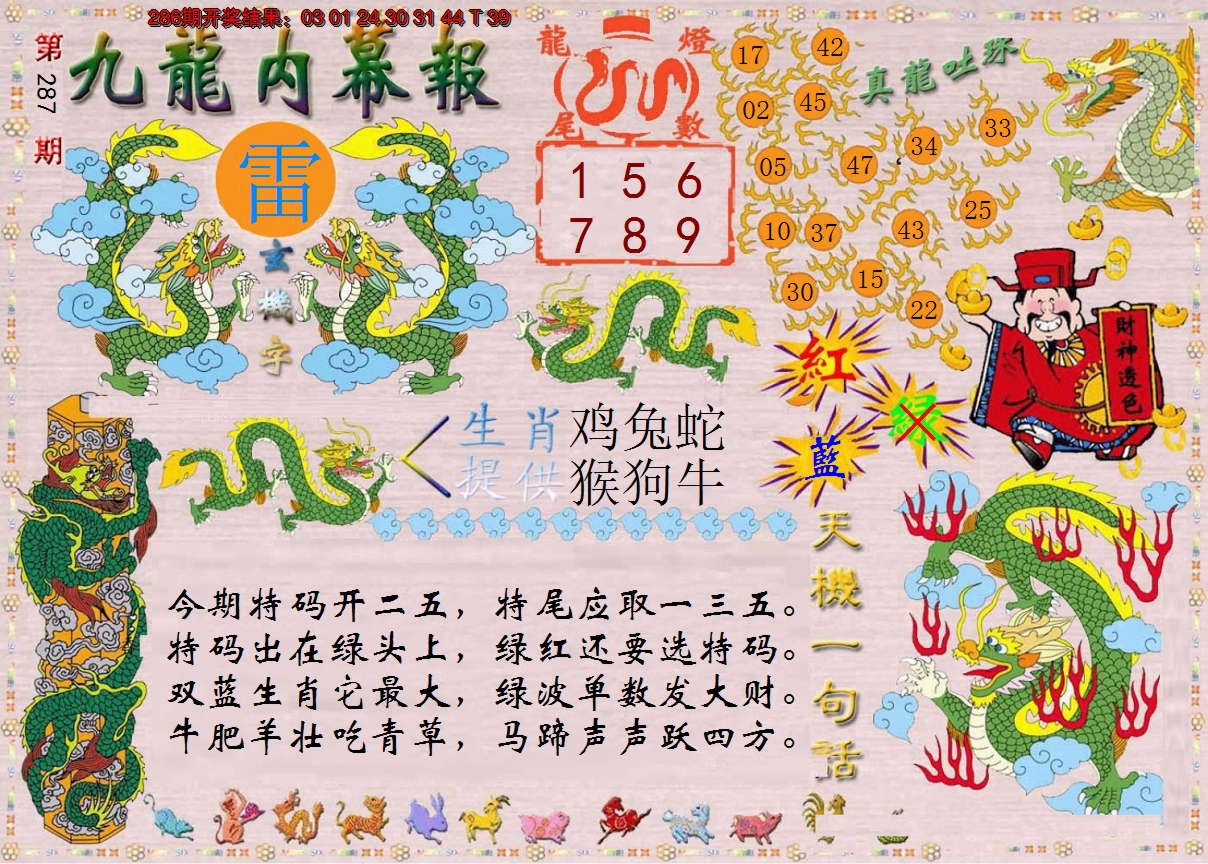 286期开奖结果：03 01 24 30 31 44 T 39
第287期
九龍内幕報
雷
玄機字
龍燈
尾數
1 5 6
7 8 9
真龍吐珠
17
42
02
45
05
47
34
33
10
37
43
25
30
15
22
紅
绿
藍
財神透色
生肖 鸡兔蛇
提供 猴狗牛
天機一句話
今期特码开二五，特尾应取一三五。
特码出在绿头上，绿红还要选特码。
双蓝生肖它最大，绿波单数发大财。
牛肥羊壮吃青草，马蹄声声跃四方。